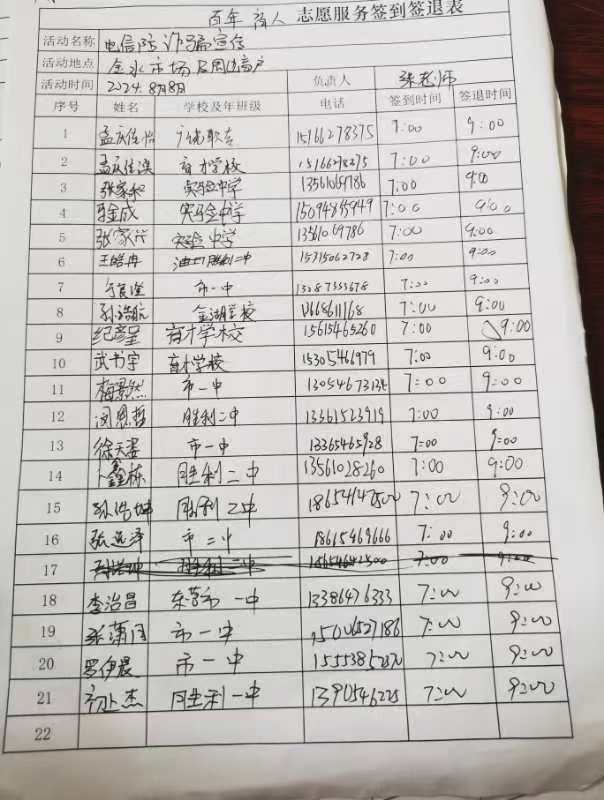 百年 育人 志愿服务签到签退表
活动名称 电信防诈骗宣传
活动地点 金水市场及周边商户
活动时间 2024.8月8日 负责人 张老师
序号 姓名 学校及年班级 电话 签到时间 签退时间
1 孟庆佳怡 职专 15166278375 7:00 9:00
2 孟庆佳淏 育才学校 15166278275 7:00 9:00
3 张家和 实验中学 13561069786 7:00 9:00
4 金成 实验中学 15094845949 7:00 9:00
5 张家兴 实验中学 13561069786 7:00 9:00
6 王皓冉 胜利二中 15315062728 7:00 9:00
7 市一中 7:00 9:00
8 孙浩航 金湖学校 7:00 9:00
9 纪彦呈 育才学校 15615465260 7:00 9:00
10 武书宇 育才学校 15305466979 7:00 9:00
11 梅景然 市一中 7:00 9:00
12 闵恩哲 胜利二中 13361523919 7:00 9:00
13 徐天 市一中 13365465928 7:00 9:00
14 卜鑫栋 胜利二中 13561028260 7:00 9:00
15 胜利二中 7:00 9:00
16 张延泽 市二中 18615469666 7:00 9:00
17 胜利二中 7:00 9:00
18 李治昌 东营市一中 13386476333 7:00 9:00
19 张潇月 市一中 15006527186 7:00 9:00
20 罗伊晨 市一中 7:00 9:00
21 初上杰 胜利一中 7:00 9:00
22